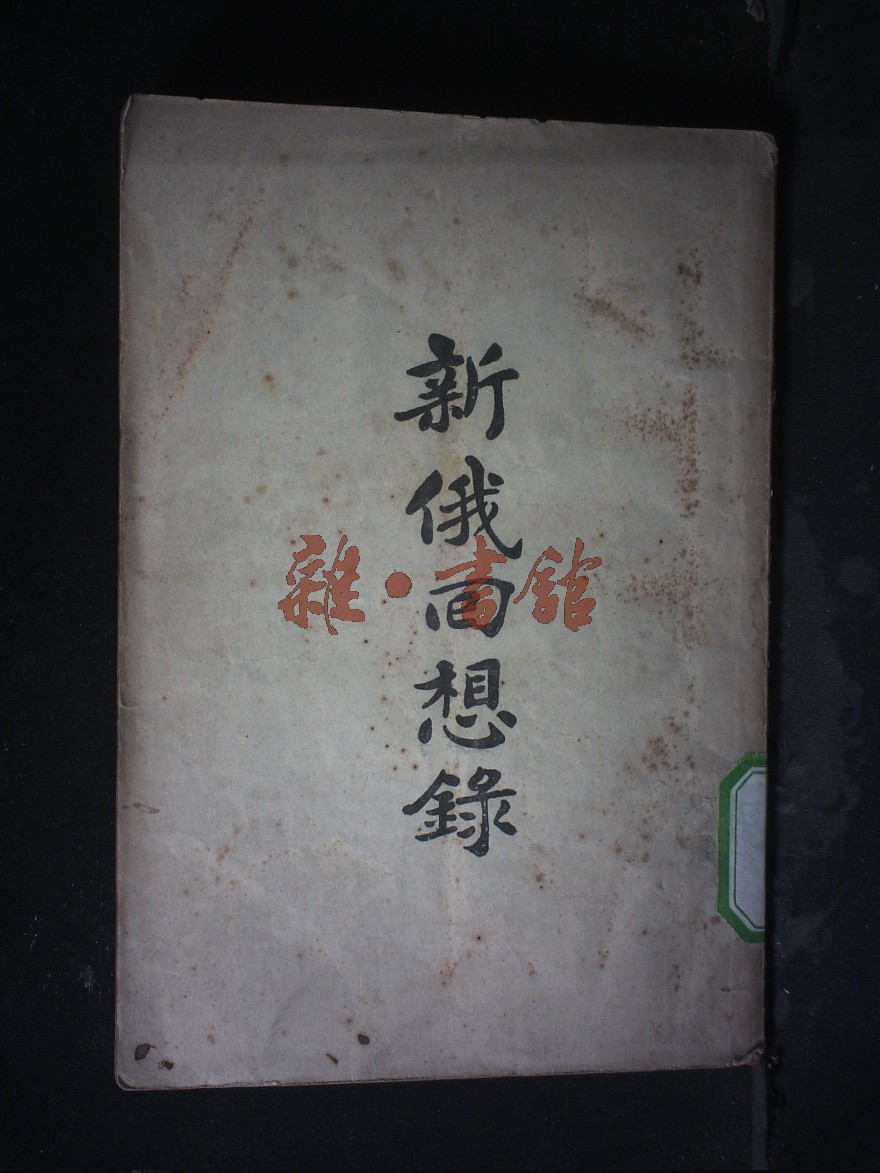 新俄回想錄
雜·書館